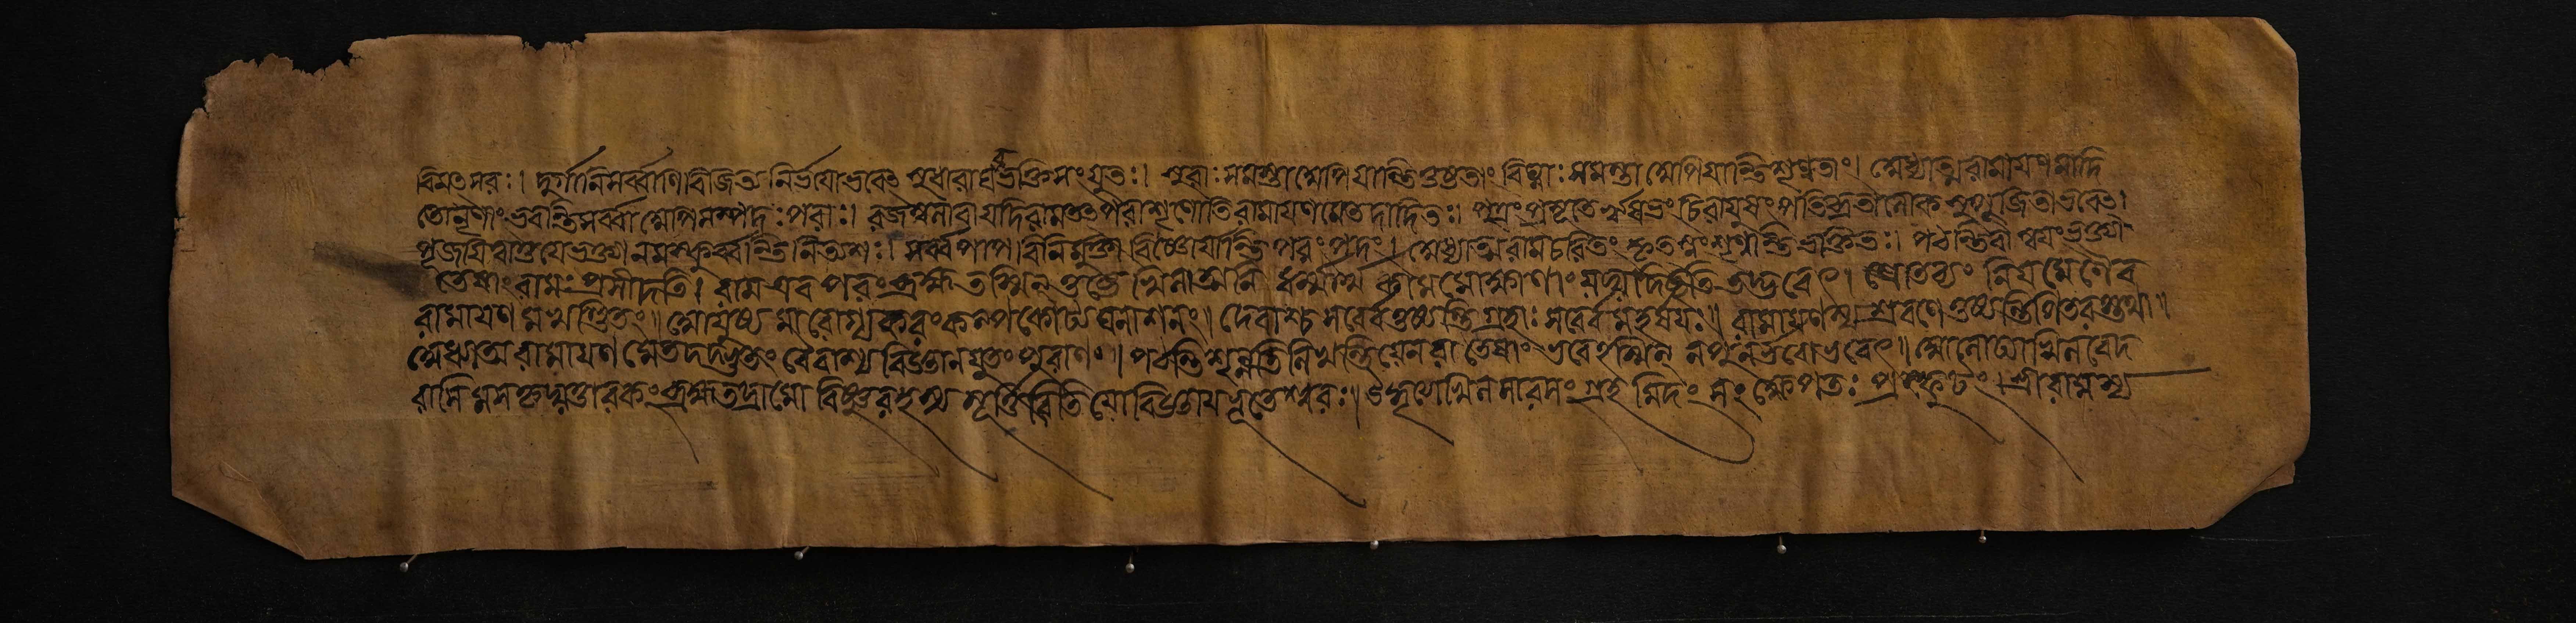 বিমৎসরঃ। দুর্গানিসর্ব্বাণি বিজিত্য নির্ভয়োভবেৎ সুখীরাঘবভক্তিসংযুতঃ। সুরাঃ সমস্তা অপি যান্তি তুষ্টতাং বিঘ্নাঃ সমস্তা অপিযান্তি শৃণ্বতাং। অধ্যাত্মরামায়ণমাদি
তোনৃণাং ভবন্তি সর্ব্বা অপি সম্পদঃ পরাঃ। রজস্বলাবাযদিরামতৎপরাশৃণোতিরামায়ণমেতদাদিতঃ। পুত্রং প্রসূতে ঋষভং চিরায়ুষং পতিব্রতা লোক সুপূজিতাভবেৎ।
পূজয়িত্বাতুযেভক্ত্যা নমস্কুর্ব্বন্তি নিত্যশঃ। সর্ব্বপাপ বিনির্মুক্তা বিষ্ণোর্যান্তি পরং পদং। অধ্যাত্মরামচরিতং কৃৎস্নং শৃণ্বন্তি ভক্তিতঃ। পঠন্তিবা স্বয়ং ভক্ত্যা
তেষাং রামঃ প্রসীদতি। রাম এব পরং ব্রহ্ম তস্মিন্ তুষ্টে খিলাত্মনি ধর্ম্মার্থ কামমোক্ষাণাং যদ্যদিচ্ছতি তদ্ভবেৎ। শ্রোতব্যং নিয়মেণৈব
রামায়ণ মখণ্ডিতং॥ আয়ুষ্য মারোগ্যকরং কল্পকোট্যঘনাশনং। দেবাশ্চ সর্ব্বে তুষ্যন্তি গ্রহাঃ সর্ব্বে মহর্ষয়ঃ॥ রামায়ণস্য শ্রবণে তুষ্যন্তি পিতরস্তথা॥
অধ্যাত্মরামায়ণ মেতদদ্ভুতং বৈরাগ্য বিজ্ঞানযুতং পুরাণং। পঠন্তি শৃণ্বন্তি লিখন্তি যেনরা তেষাং ভবেহস্মিন্ নপুনর্ভবোভবেৎ॥ আলোড্যাখিলবেদ
রাসি মসকৃদ্যত্তারকং ব্রহ্মতদ্রামো বিষ্ণুরহস্য মূর্ত্তিরিতি যোবিজ্ঞায়ভূতেশ্বরঃ। উদ্ধৃত্যাখিলসারসংগ্রহ মিদং সংক্ষেপতঃ প্রস্ফুটং। শ্রীরামস্য